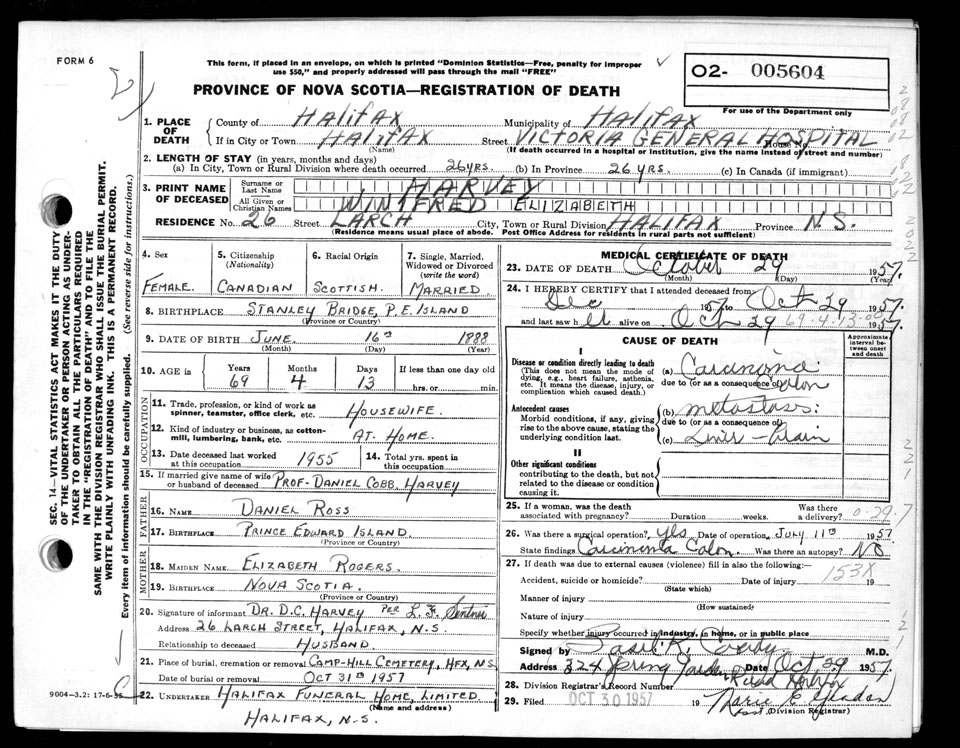 FORM 6
This form, if placed in an envelope, on which is printed "Dominion Statistics—Free, penalty for improper
use $50," and properly addressed will pass through the mail "FREE"
O2- 005604
PROVINCE OF NOVA SCOTIA—REGISTRATION OF DEATH
For use of the Department only
1. PLACE OF DEATH
County of HALIFAX Municipality of HALIFAX
If in City or Town HALIFAX Street VICTORIA GENERAL HOSPITAL House No.
(Name) (If death occurred in a hospital or institution, give the name instead of street and number)
2. LENGTH OF STAY (in years, months and days)
(a) In City, Town or Rural Division where death occurred 26 YRS. (b) In Province 26 YRS. (c) In Canada (if immigrant)
3. PRINT NAME OF DECEASED
Surname or Last Name HARVEY
All Given or Christian Names WINIFRED ELIZABETH
RESIDENCE No. 26 Street LARCH City, Town or Rural Division HALIFAX Province N.S.
(Residence means usual place of abode. Post Office Address for residents in rural parts not sufficient)
SEC. 14—VITAL STATISTICS ACT MAKES IT THE DUTY
OF THE UNDERTAKER OR PERSON ACTING AS UNDER-
TAKER TO OBTAIN ALL THE PARTICULARS REQUIRED
IN THE "REGISTRATION OF DEATH" AND TO FILE THE
SAME WITH THE DIVISION REGISTRAR WHO SHALL ISSUE THE BURIAL PERMIT.
WRITE PLAINLY WITH UNFADING INK. THIS IS A PERMANENT RECORD.
Every item of information should be carefully supplied. (See reverse side for instructions.)
4. Sex
FEMALE.
5. Citizenship
(Nationality)
CANADIAN
6. Racial Origin
SCOTTISH.
7. Single, Married,
Widowed or Divorced
(write the word)
MARRIED
8. BIRTHPLACE STANLEY BRIDGE, P.E. ISLAND
(Province or Country)
9. DATE OF BIRTH JUNE. 16TH 1888
(Month) (Day) (Year)
10. AGE in Years 69 Months 4 Days 13 If less than one day
hrs. or min.
OCCUPATION
11. Trade, profession, or kind of work as
spinner, teamster, office clerk, etc. HOUSEWIFE.
12. Kind of industry or business, as cotton-
mill, lumbering, bank, etc. AT HOME.
13. Date deceased last worked
at this occupation 1955
14. Total yrs. spent in
this occupation
15. If married give name of wife
or husband of deceased PROF- DANIEL COBB. HARVEY
FATHER
16. NAME DANIEL ROSS
17. BIRTHPLACE PRINCE EDWARD ISLAND.
(Province or Country)
MOTHER
18. MAIDEN NAME ELIZABETH ROGERS.
19. BIRTHPLACE NOVA SCOTIA.
(Province or Country)
20. Signature of informant DR. D.C. HARVEY PER L. F.
Address 26 LARCH STREET, HALIFAX, N.S.
Relationship to deceased HUSBAND.
21. Place of burial, cremation or removal CAMP-HILL CEMETERY, HFX, N.S.
Date of burial or removal OCT 31ST 1957
9004—3.2: 17-6-55
22. UNDERTAKER HALIFAX FUNERAL HOME, LIMITED.
(Name and address)
HALIFAX, N.S.
MEDICAL CERTIFICATE OF DEATH
23. DATE OF DEATH October 29 1957.
(Month) (Day) (Year)
24. I HEREBY CERTIFY that I attended deceased from
Dec 1957 to Oct 29 1957.
and last saw h alive on Oct 29 1957.
69-4-13-00
CAUSE OF DEATH
Approximate
interval be-
tween onset
and death
I
Disease or condition directly leading to death
(This does not mean the mode of
dying, e.g., heart failure, asthenia,
etc. It means the disease, injury, or
complication which caused death.)
(a) Carcinoma
due to (or as a consequence of) Colon
Antecedent causes
Morbid conditions, if any, giving
rise to the above cause, stating the
underlying condition last.
(b) metastases:
due to (or as a consequence of)
(c) Liver — Brain
II
Other significant conditions
contributing to the death, but not
related to the disease or condition
causing it.
25. If a woman, was the death Was there
associated with pregnancy? Duration weeks. a delivery? 0-29.7
26. Was there a surgical operation? Yes Date of operation JULY 11TH 1957
State findings Carcinoma Colon. Was there an autopsy? NO
27. If death was due to external causes (violence) fill in also the following:— 153X
Accident, suicide or homicide? Date of injury 19
(State which)
Manner of injury
(How sustained)
Nature of injury
Specify whether injury occurred in industry, in home, or in public place
Signed by Basil K. M.D.
Address 324 Spring Garden Road Halifax Date Oct 29 1957.
28. Division Registrar's Record Number
29. Filed OCT 30 1957 19 Marie E.
Asst. (Division Registrar)